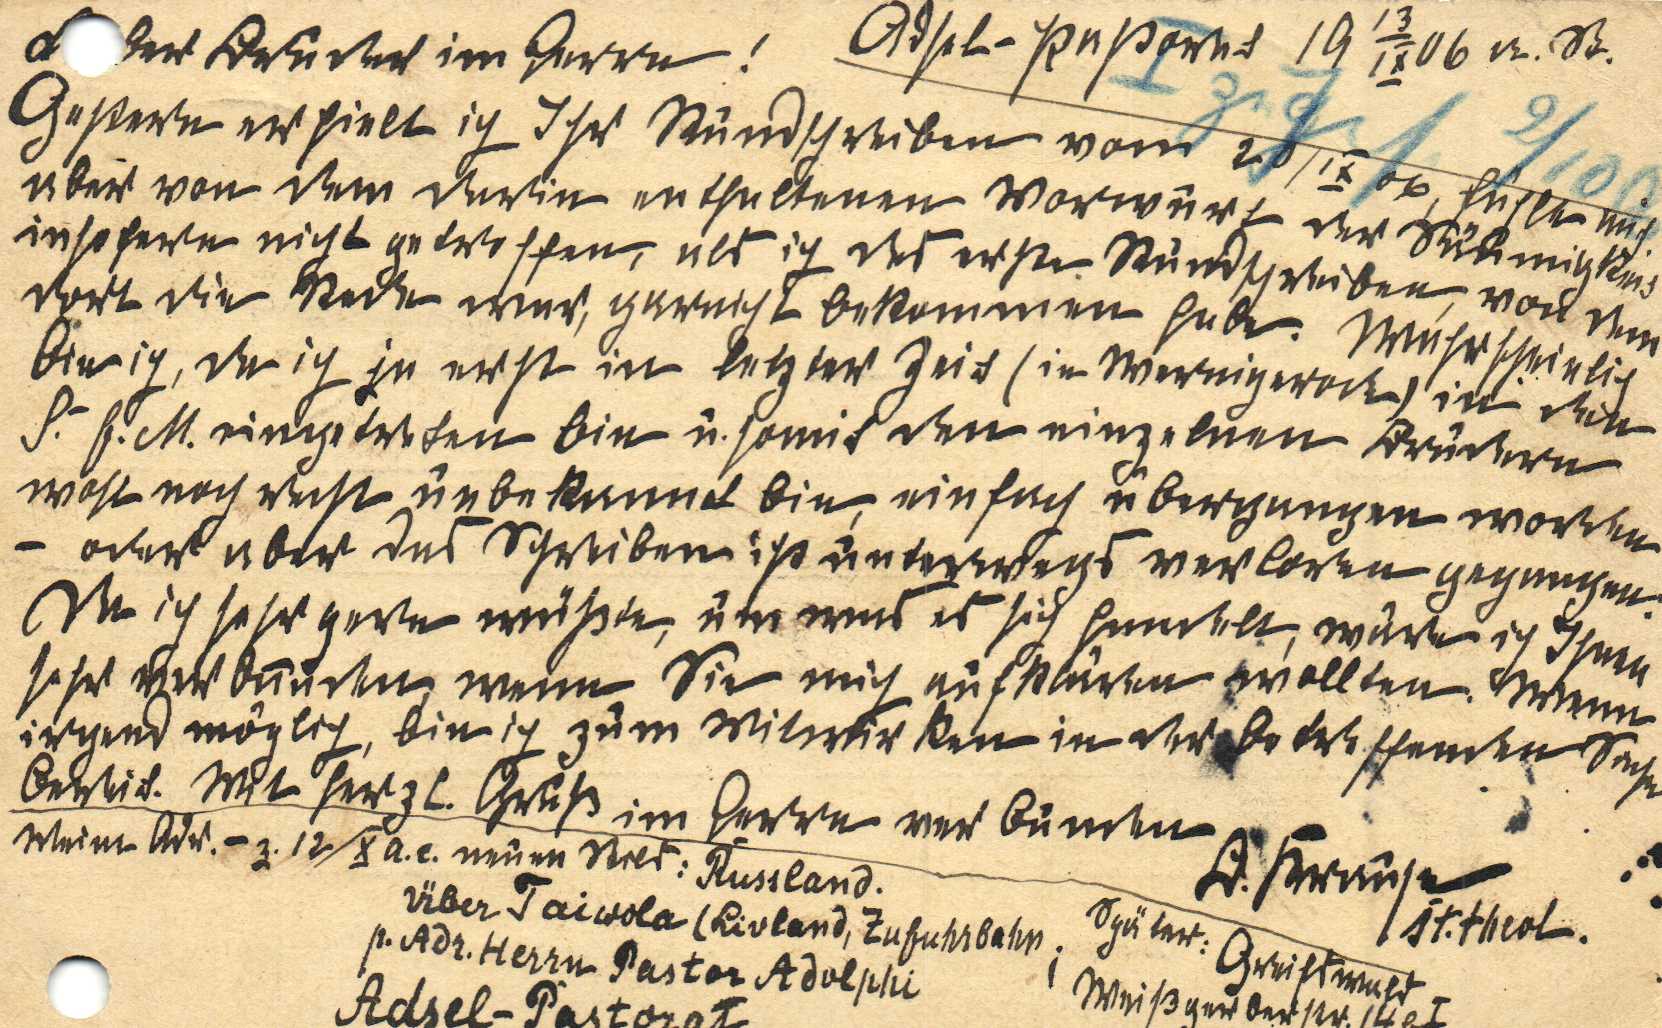 Lieber Bruder im Herrn! Adsel-Pastorat 19 13/IX 06 a. St.
Gestern erhielt ich Ihr Rundschreiben vom 20/IX 06, fühle mich
aber von dem darin enthaltenen Vorwurf der Säumigkeit
insofern nicht getroffen, als ich das erste Rundschreiben, von dem
dort die Rede war, garnicht bekommen habe. Wahrscheinlich
bin ich, da ich ja erst in letzter Zeit (in Wernigerode) in den
S. f. M. eingetreten bin u. somit den einzelnen Brüdern
wohl noch recht unbekannt bin, einfach übergangen worden
- oder aber das Schreiben ist unterwegs verloren gegangen.
Da ich sehr gern wüßte, um was es sich handelt, wäre ich Ihnen
sehr verbunden, wenn Sie mich aufklären wollten. Wenn
irgend möglich, bin ich zum Mitwirken in der betreffenden Sache
bereit. Mit herzl. Gruß im Herrn verbunden
Meine Adr. - z. 12/X a. c. neuen Stils: Russland.
über Taiwola (Livland, Zufuhrbahn
p. Adr. Herrn Pastor Adolphi
Adsel-Pastorat
D. Krause
st. theol.
Später: Greifswald
Weißgerberstr.